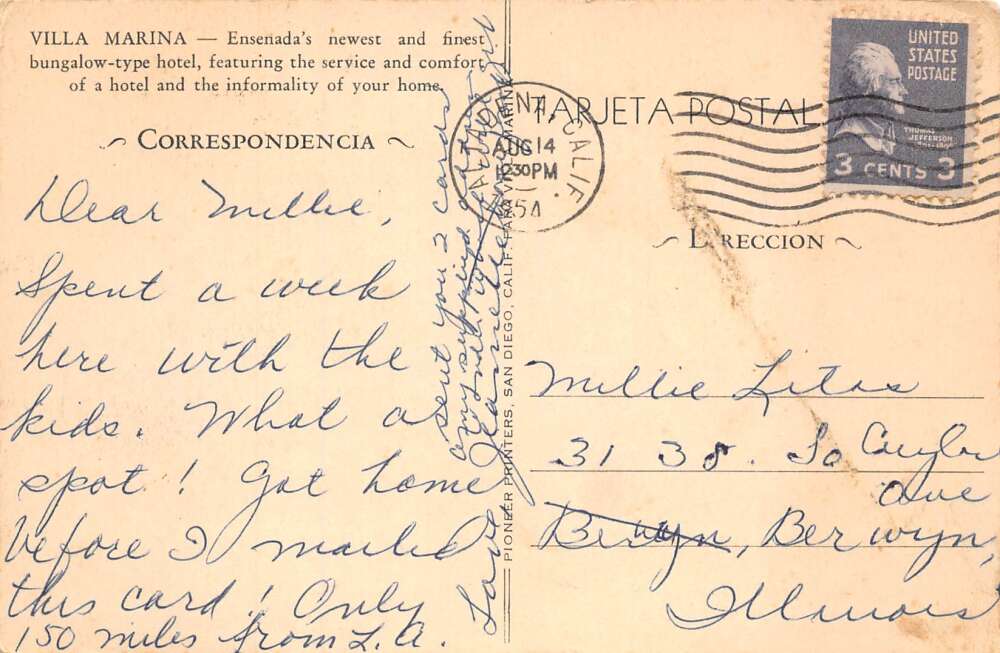 VILLA MARINA — Ensenada's newest and finest
bungalow-type hotel, featuring the service and comfort
of a hotel and the informality of your home.
~ CORRESPONDENCIA ~
Dear Millie,
Spent a week
here with the
kids. What a
spot! Got home
before I mailed
this card! Only
150 miles from L.A.
sent you 2 cards
Love Jeannette
PIONEER PRINTERS, SAN DIEGO, CALIF.
MARINE
TARJETA POSTAL
CALIF.
AUG 14
1230PM
54
UNITED
STATES
POSTAGE
THOMAS
JEFFERSON
3 CENTS 3
~ DIRECCION ~
Millie Litas
3138 So Cuyler
Ave
Berwyn, Berwyn,
Illinois